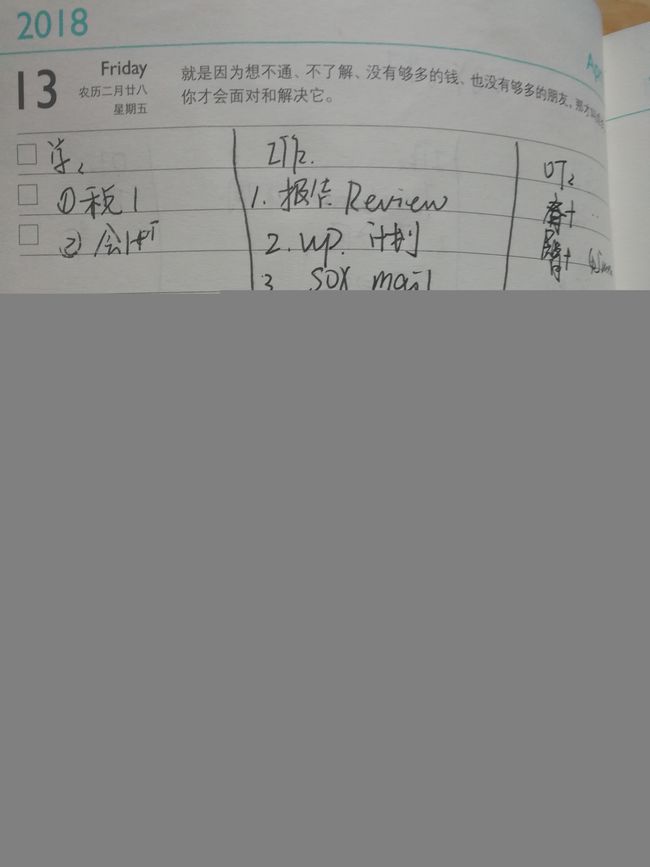 2018
Apr
13
Friday
农历二月廿八
星期五
就是因为想不通、不了解、没有够多的钱、也没有够多的朋友,
你才会面对和解决它。
学、
①税1
② 会
工作.
1. 报告 Review
2. up. 计划
3. SOX mail